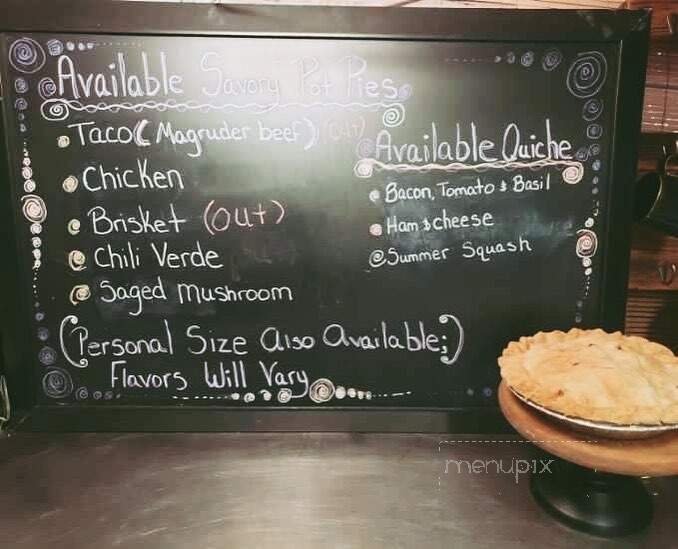 Available Savory Pot Pies
Taco (Magruder beef) (out)
Chicken
Brisket (out)
Chili Verde
Saged Mushroom
(Personal Size Also Available;
Flavors Will Vary)
Available Quiche
Bacon, Tomato & Basil
Ham & cheese
Summer Squash
menupix